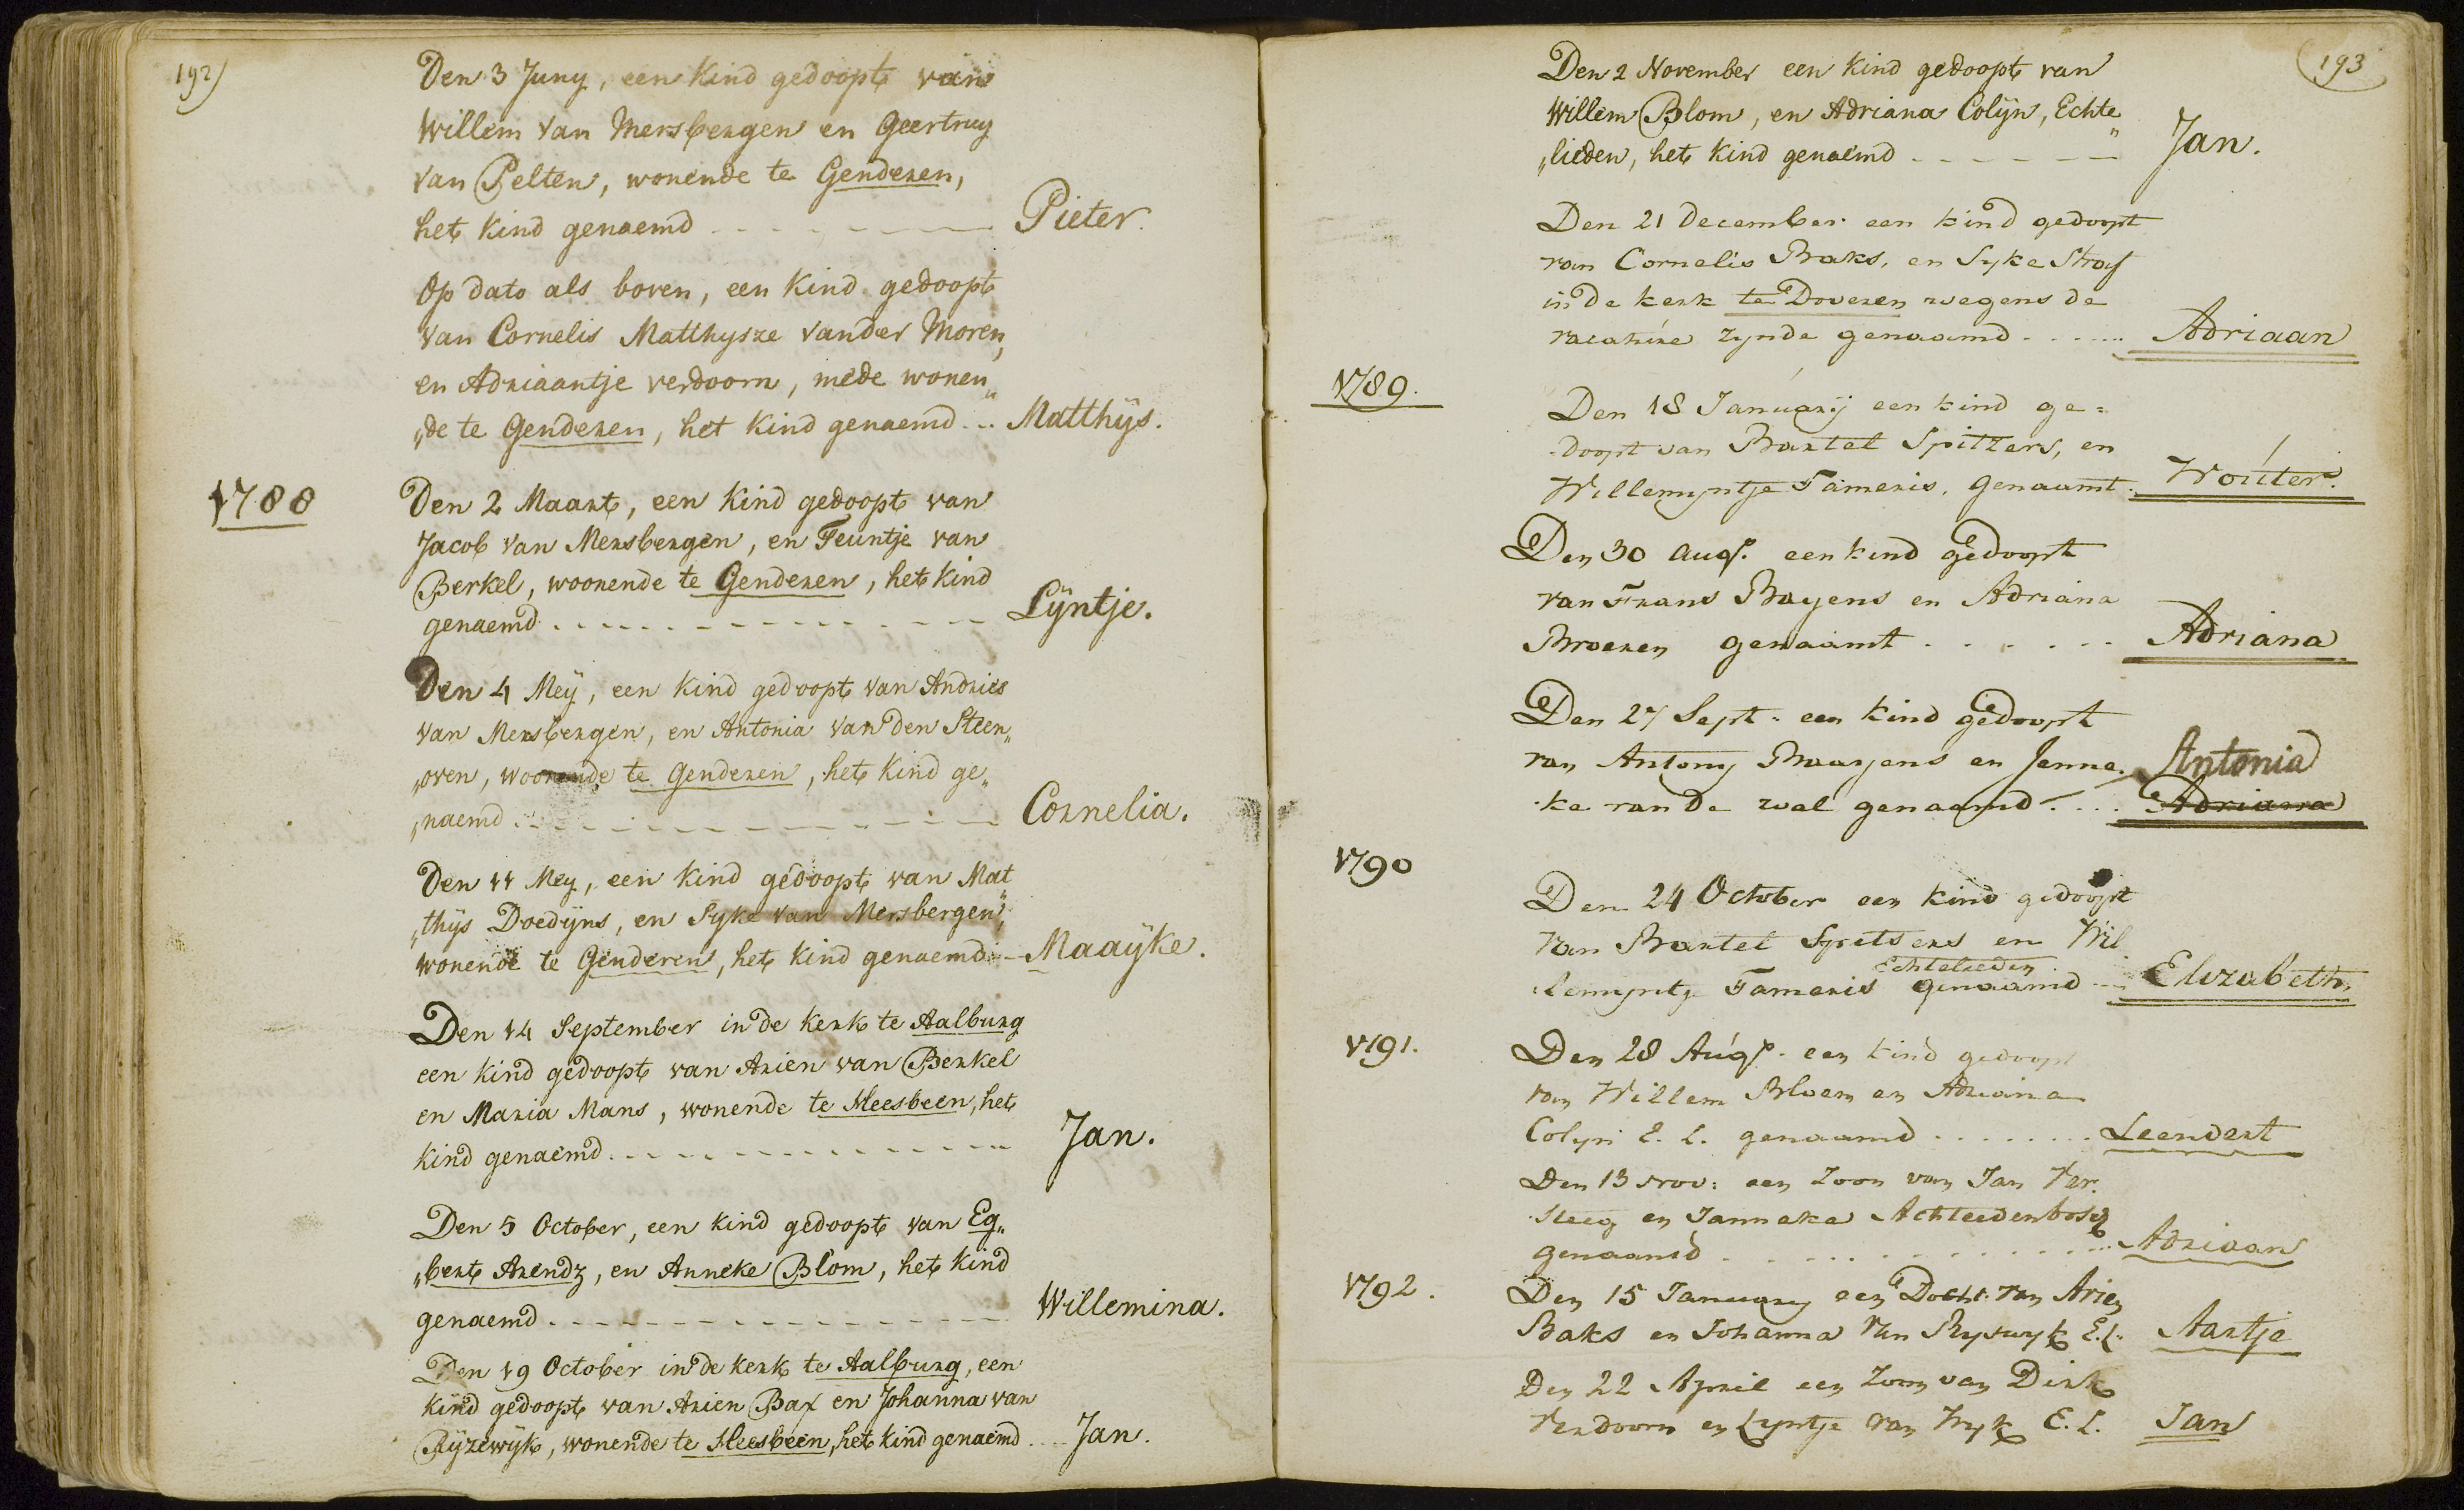 192)
Den 3 Juny, een Kind gedoopt van
Willem van Mersbergen en Geertruy
van Pelten, wonende te Genderen,
het Kind genaemd - - - - - Pieter.
Op dato als boven, een Kind gedoopt
van Cornelis Matthysze vander Moren,
en Adriaantje verdoorn, mede wonen„
„de te Genderen, het Kind genaemd... Matthÿs.
1788
Den 2 Maart, een Kind gedoopt van
Jacob van Mersbergen, en Teuntje van
Berkel, woonende te Genderen, het Kind
genaemd - - - - - Lÿntje.
Den 4 Meÿ, een Kind gedoopt van Andries
van Mersbergen, en Antonia van den Steen„
„oven, woonende te Genderen, het Kind ge„
„naemd - - - - - Cornelia.
Den 11 Mey, een Kind gedoopt van Mat„
„thÿs Doedÿns, en Syke van Mersbergen,
wonende te Genderen, het Kind genaemd - Maaÿke.
Den 14 September in de Kerk te Aalburg
een kind gedoopt van Arien van Berkel
en Maria Mans, wonende te Heesbeen, het
kind genaemd - - - - - Jan.
Den 5 October, een kind gedoopt van Eg„
„bert Arendz, en Anneke Blom, het Kind
genaemd - - - - - Willemina.
Den 19 October in de kerk te Aalburg, een
kind gedoopt van Arien Bax en Johanna van
Rÿzewÿk, wonende te Heesbeen, het kind genaemd ... Jan.
193
Den 2 November een Kind gedoopt van
Willem Blom, en Adriana Colÿn, Echte„
„lieden, het Kind genaemd - - - - - Jan.
Den 21 December een kind gedoopt
van Cornelis Baks, en Syke Straf
in de kerk te Doveren wegens de
vacature zynde genaamd ...... Adriaan
1789.
Den 18 Januarÿ een kind ge=
doopt van Bartel Spitzers, en
Willemyntje Tameris. Genaamt. Woúter.
Den 30 Augs. een kind gedoopt
van Frans Bayens en Adriana
Broeren genaamt ...... Adriana
Den 27 Sept: een Kind gedoopt
van Antony Baayens en Janne. Antonia
ke van de wal genaamd .... Adriana
1790
Den 24 October een kind gedoopt
van Bartel Spitsers en Wil
Echtelieden
lemyntje Tameris genaamd --- Elizabeth.
1791.
Den 28 Aúgs. een kind gedoopt
van Willem Bloem en Adriana
Colyn E. L. genaamd ........ Leendert
Den 13 nov: een Zoon van Jan Ver.
steeg en Janneke Achteedenbosch
genaamd ............ Adriaan
1792.
Den 15 January een Docht. van Arien
Baks en Johanna van Ryswyk E.L. Aartje
Den 22 April een Zoon van Dirk
Verdoorn en Lyntje van Wyk E. L. Jan